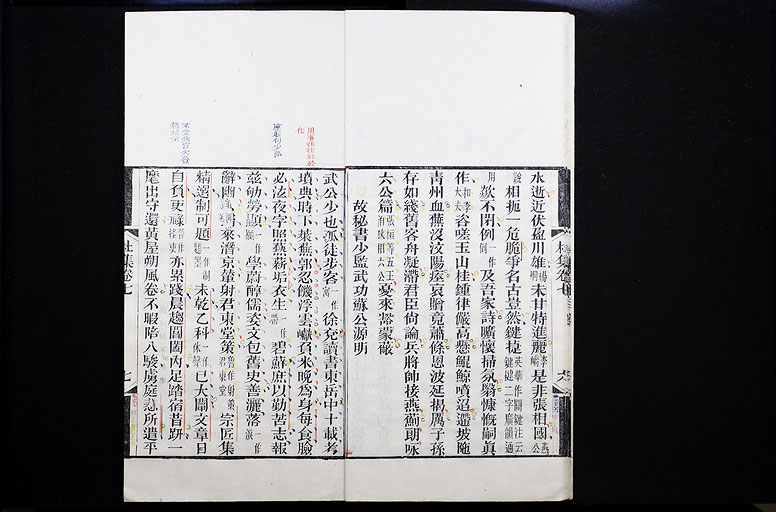 水逝近伏盈川雄未甘特進麗是非張相國
相扼一危脆爭名古豈然鍵捷
歘不閉例及吾家詩曠懷掃氛翳慷慨嗣真
作咨嗟玉山桂鍾律儼高懸鯤鯨噴迢遰坡陁
青州血蕪沒汶陽瘞哀贈竟蕭條恩波延揭厲子孫
存如綫舊客舟凝滯君臣尚論兵將帥接燕薊朗咏
六公篇憂來豁蒙蔽
故秘書少監武功蘇公源明
武公少也孤徒步客徐兗讀書東岳中十載考
墳典時下萊蕪郭忍饑浮雲巘負米晚為身每食臉
必泫夜字照爇薪垢衣生碧蘚庶以勤苦志報
茲劬勞顯學蔚醇儒姿文包舊史善灑落
辭幽人歸來潛京輦射君東堂策宗匠集
精選制可題未乾乙科已大闡文章日
自負吏祿亦累踐晨趨閶闔內足踏宿昔趼一
麾出守還黃屋朔風卷不暇陪八駿虜庭悲所遣平
杜集卷七
七
杜集卷七
六